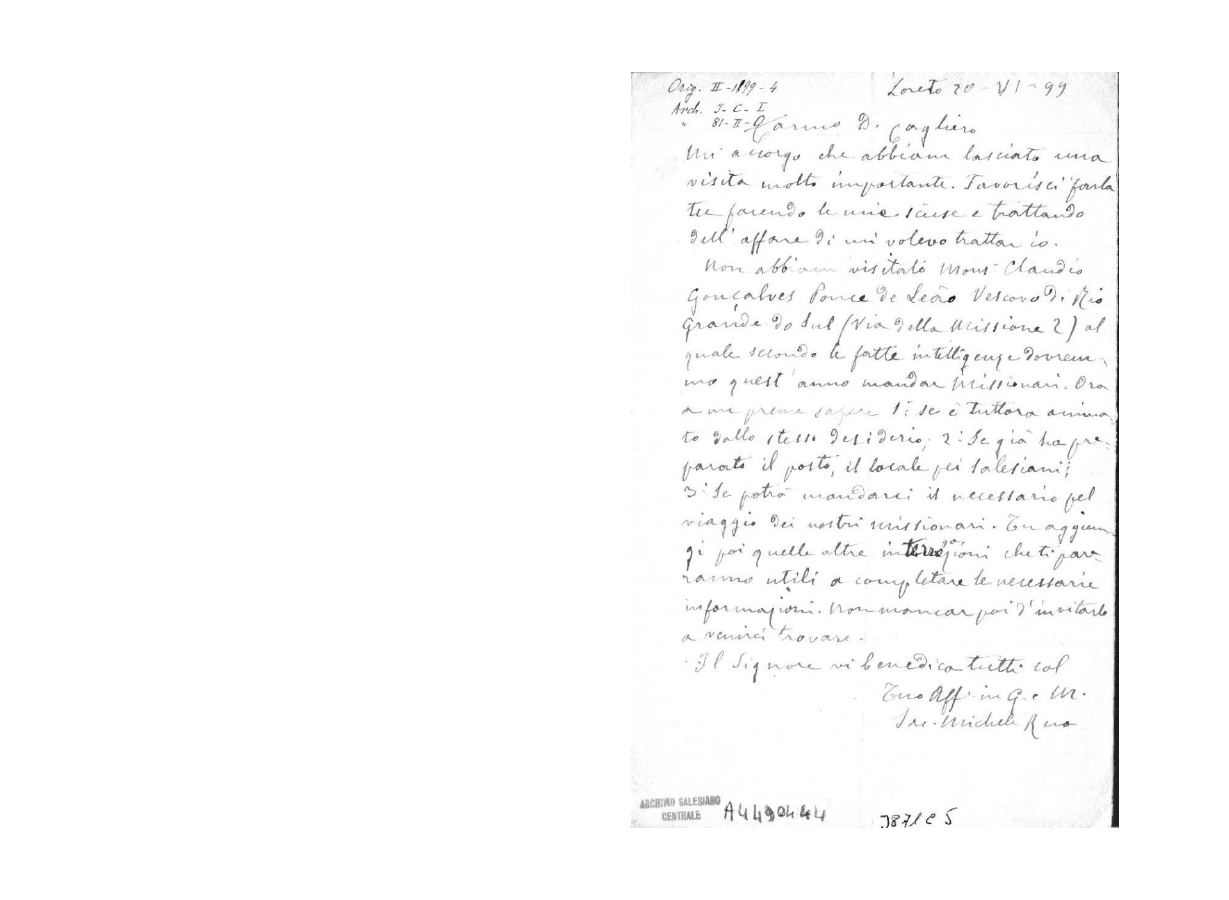 Orig. II-1899-4
Loreto 20-VI-99
Arch. J-C-I
" 81-II-9
Carmo D. Cagliero
Mi accorgo che abbiam lasciato una
visita molto importante. Favorisci farla
tu facendo le mie scuse e trattando
dell'affare di cui volevo trattar io.
Non abbiam visitato Mons Claudio
Gonçalves Ponce de Leão Vescovo di Rio
Grande do Sul (Via della Missione 2) al
quale secondo le fatte intelligenze dovrem-
mo quest'anno mandar Missionari. Ora
a me preme sapere 1º se è tuttora anima-
to dallo stesso desiderio; 2º Se già ha pre-
parato il posto, il locale pei Salesiani;
3º Se potrà mandarci il necessario pel
viaggio dei nostri missionari. Tu aggiun-
gi poi quelle altre interrogazioni che ti par-
ranno utili a completare le necessarie
informazioni. Non mancar poi d'invitarlo
a venirci trovare.
Il Signore vi benedica tutti col
Tuo Aff. in G. e M.
Sac. Michele Rua
ARCHIVIO SALESIANO
CENTRALE
A4490444
3871C5